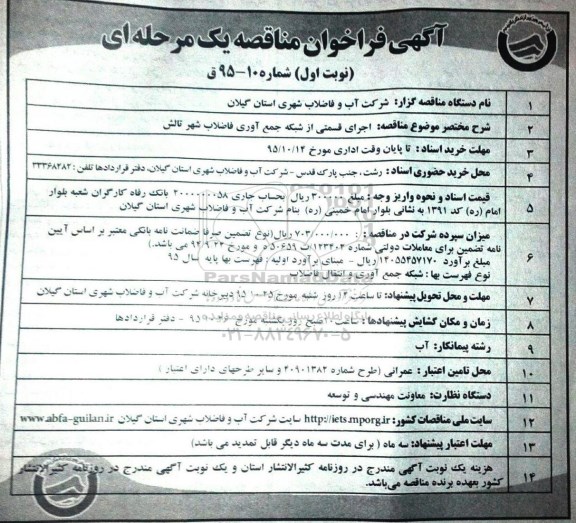 آگهی فراخوان مناقصه یک مرحله ای
(نوبت اول) شماره ۱۰-۹۵ ق
۱ نام دستگاه مناقصه گزار: شرکت آب و فاضلاب شهری استان گیلان
۲ شرح مختصر موضوع مناقصه: اجرای قسمتی از شبکه جمع آوری فاضلاب شهر تالش
۳ مهلت خرید اسناد: تا پایان وقت اداری مورخ ۹۵/۱۰/۱۴
۴ محل خرید حضوری اسناد: رشت، جنب پارک قدس - شرکت آب و فاضلاب شهری استان گیلان، دفتر قراردادها تلفن: ۳۳۳۶۸۴۸۲
۵ قیمت اسناد و نحوه واریز وجه: مبلغ ریال بحساب جاری بانک رفاه کارگران شعبه بلوار
امام (ره) کد ۱۳۹۱ به نشانی بلوار امام خمینی (ره) بنام شرکت آب و فاضلاب شهری استان گیلان
۶ میزان سپرده شرکت در مناقصه: ۷۰۳/۰۰۰/۰۰۰ ریال (نوع تضمین صرفا ضمانت نامه بانکی معتبر بر اساس آیین
نامه تضمین برای معاملات دولتی شماره ۱۲۳۴۰۲/ت ۵۰۶۵۹ ه و مورخ ۹۴/۹/۲۲ می باشد.)
مبلغ برآورد ۱۴۰۵۵۴۵۷۱۷۰ ریال - مبنای برآورد اولیه: فهرست بها پایه سال ۹۵
نوع فهرست بها: شبکه جمع آوری و انتقال فاضلاب
۷ مهلت و محل تحویل پیشنهاد: تا ساعت روز شنبه مورخ دبیرخانه شرکت آب و فاضلاب شهری استان گیلان
۸ زمان و مکان گشایش پیشنهادها: ساعت ۱۰ صبح روز یکشنبه مورخ ۹۵ - دفتر قراردادها
۹ رشته پیمانکار: آب
۱۰ محل تامین اعتبار: عمرانی (طرح شماره ۴۰۹۰۱۳۸۲ و سایر طرحهای دارای اعتبار)
۱۱ دستگاه نظارت: معاونت مهندسی و توسعه
۱۲ سایت ملی مناقصات کشور: http://iets.mporg.ir سایت شرکت آب و فاضلاب شهری استان گیلان www.abfa-guilan.ir
۱۳ مهلت اعتبار پیشنهاد: سه ماه (برای مدت سه ماه دیگر قابل تمدید می باشد)
۱۴ هزینه یک نوبت آگهی مندرج در روزنامه کثیرالانتشار استان و یک نوبت آگهی مندرج در روزنامه کثیرالانتشار
کشور بعهده برنده مناقصه می‌باشد.
ParsNamadData
پایگاه اطلاع رسانی مناقصه و مزایده
۰۲۱-۸۸۳۴۹۶۷۰-۵